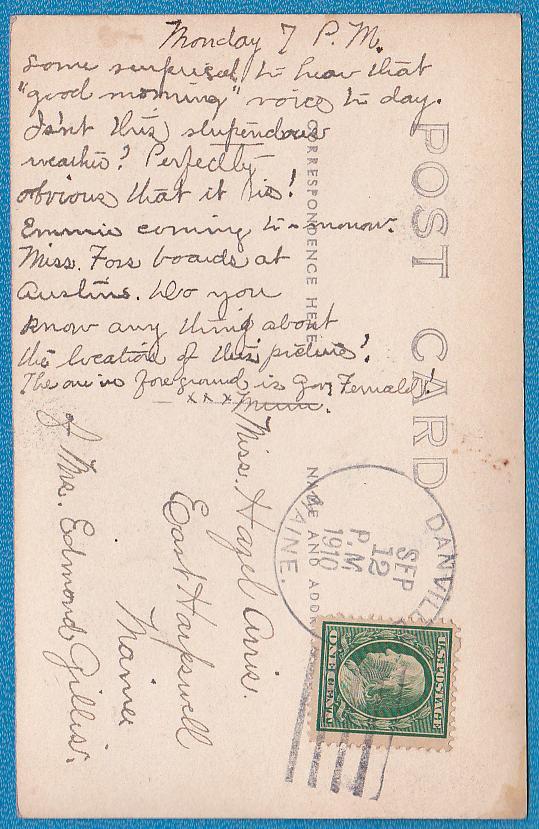 Monday 7 P.M.
Some surprised to hear that
"good morning" voice to day.
Isn't this stupendous
weather? Perfectly
obvious that it is!
Emmie coming to-morrow.
Miss. Foss boards at
Austins. Do you
know any thing about
the location of this picture?
The one in foreground is Gov. Fernald!
xxx
POST CARD
CORRESPONDENCE HERE
NAME AND ADDR
Miss. Hazel
East Harpswell
Maine
Mrs. Edmond Gillis.
DANVILL
SEP
12
P.M
1910
MAINE.
U.S. POSTAGE
ONE CENT